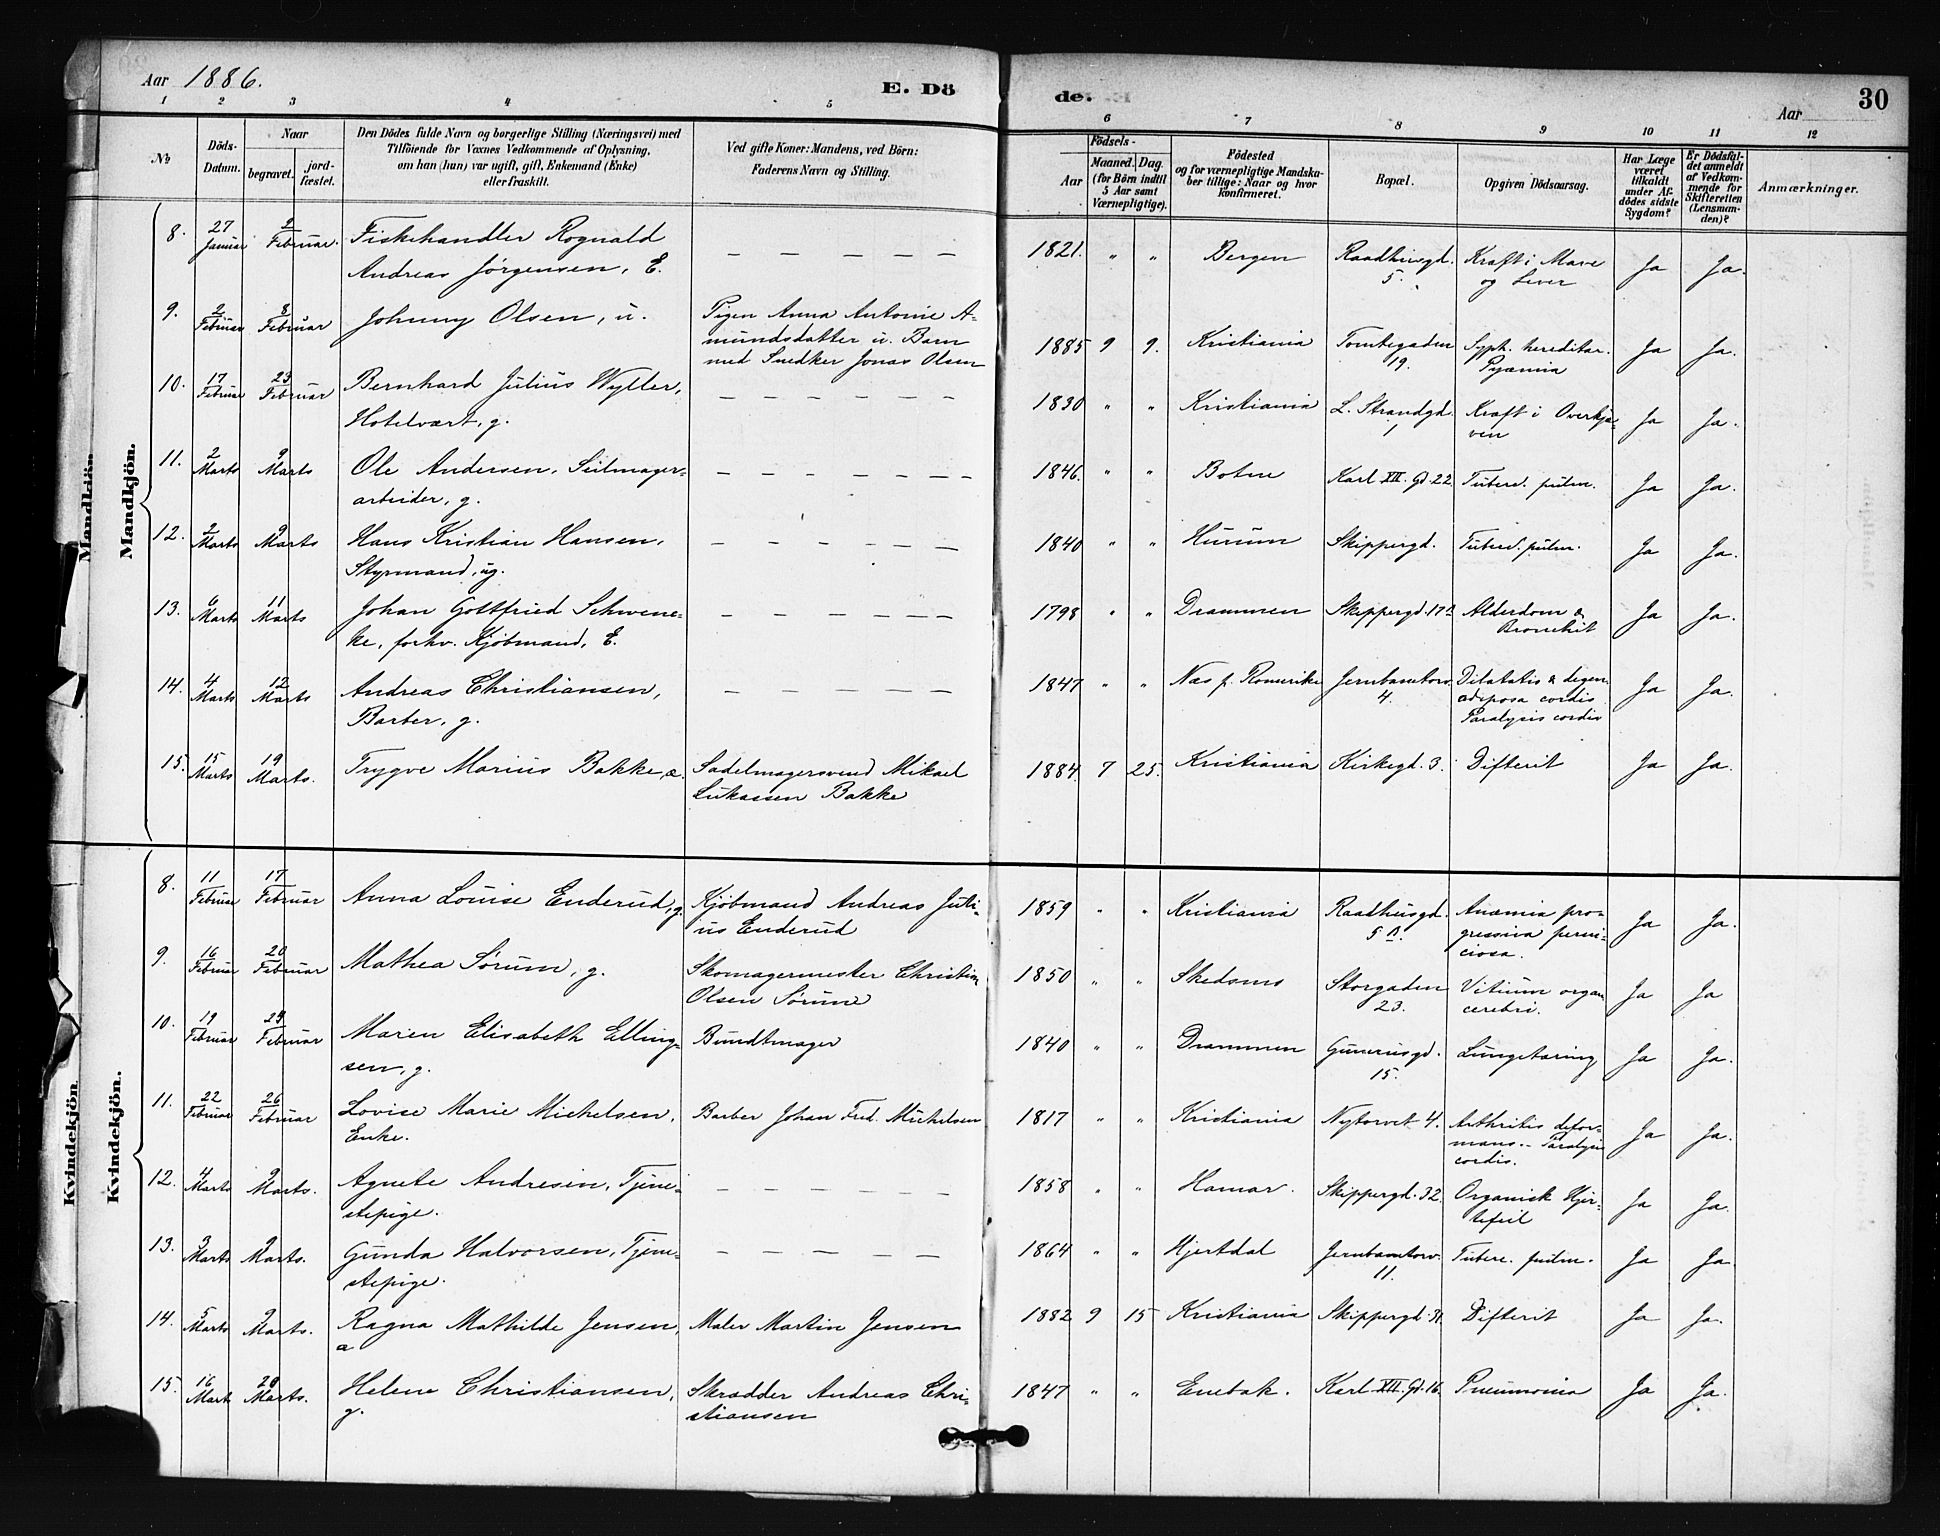 Aar 1886. E. Dö de. Aar 30
1 2 3 4 5 6 7 8 9 10 11 12
No
Döds-Datum.
Naar begravet. jordfæstet.
Den Dödes fulde Navn og borgerlige Stilling (Næringsvei) med
Tilföiende for Voxnes Vedkommende af Oplysning,
om han (hun) var ugift, gift, Enkemand (Enke)
eller fraskilt.
Ved gifte Koner: Mandens, ved Börn:
Faderens Navn og Stilling.
Födsels-
Aar Maaned. Dag.
(for Börn indtil
5 Aar samt
Værnepligtige).
Födested
og for værnepligtige Mandska-
ber tillige: Naar og hvor
konfirmeret.
Bopæl.
Opgiven Dödsaarsag.
Har Læge
været
tilkaldt
under Af-
dödes sidste
Sygdom?
Er Dödsfal-
det anmeldt
af Vedkom-
mende for
Skifteretten
(Lensman-
den)?
Anmærkninger.
Mandkjön.
Mandkjön.
8. 27 Januar 2 Februar. Fiskehandler Rognald — — — — — 1821. " " Bergen Raadhusgd. Kræft i Mave Ja Ja.
Andreas Jørgensen, E. 5. og Lever
9. 2 Februar 8 Februar Johnny Olsen, u. Pigen Anna Antonie A- 1885 9 9. Kristiania Tomtegaden Syph. hereditar. Ja Ja.
mundsdatter u. Barn 19. Pyæmia
med Snedker Jonas Olsen
10. 17 Februar 23 Februar Bernhard Julius Wyller, — — — — — — 1830 " " Kristiania L. Strandgd. Kræft i Overkjæ- Ja Ja.
Hotelvært, g. 1 ven
11. 2 Marts 9 Marts Ole Andersen, Seilmager- — — — — — — 1846. " " Botne Karl XII. Gd. 22. Tuberc. pulm. Ja Ja.
arbeider, g.
12. 2 Marts 9 Marts Hans Kristian Hansen, — — — — — — 1840 " " Hurum Skippergd. Tuberc. pulm. Ja Ja.
Styrmand, ug.
13. 6 Marts 11 Marts Johan Gottfried Schwenc- — — — — — — 1798 " " Drammen Skippergd. Alderdom & Ja Ja.
ke, forhv. Kjøbmand, E. Bronchit
14. 4 Marts 12 Marts Andreas Christiansen, — — — — — — 1847 " " Næs p. Romerike Jernbanetorv. Dilatatis & degen. Ja Ja.
Barber, g. 4. adiposa cordis
Paralysis cordis
15. 15 Marts 19 Marts. Trygve Marius Bakke, æ. Sadelmagersvend Mikael 1884. 7 25. Kristiania Kirkegd. 3. Difterit Ja Ja.
Lukassen Bakke
Kvindekjön.
Kvindekjön.
8. 11 Februar 17 Februar Anna Louise Enderud, g. Kjöbmand Andreas Juli- 1859 " " Kristiania Raadhusgd. Anæmia pro- Ja Ja.
us Enderud 5 B. gressiva perni-
ciosa.
9. 16 Februar 20 Februar Mathea Sørum, g. Skomagermester Christian 1850 " " Skedsmo Storgaden Vitium organ. Ja Ja
Olsen Sørum 23. cerebri.
10. 19 Februar 24 Februar Maren Elisabeth Elling- Bundtmager 1840 " " Drammen Gunerusgd. Lungetæring Ja Ja.
sen, g. 15.
11. 22 Februar 26 Februar Lovise Marie Michelsen, Barber Johan Fred. Michelsen 1817 " " Kristiania Nytorvet 4. Arthritis defor- Ja Ja.
Enke. mans.- Paralysis
cordis.
12. 4 Marts 9 Marts. Agnete Andresen, Tjene- — — — — — — 1858 " " Hamar. Skippergd. 32. Organisk Hjer- Ja Ja.
stepige. tefeil
13. 3 Marts 9 Marts. Gunda Halvorsen, Tjene- — — — — — 1864 " " Hjertdal Jernbanetorv. Tuberc. pulm. Ja Ja.
stepige. 11.
14. 5 Marts 9 Marts. Ragna Mathilde Jensen, Maler Martin Jensen 1882 9 15 Kristiania Skippergd. 31. Difterit Ja Ja.
æ
15. 16 Mart 20 Marts. Helene Christiansen, Skrædder Andreas Chri- 1847 " " Enebak. Karl XII. Gd. 16. Pneumonia Ja Ja.
g. stiansen